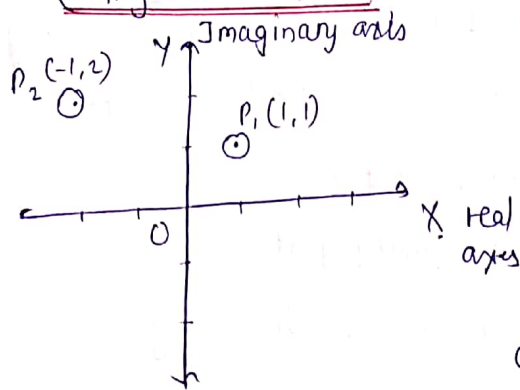 Y Imaginary axis
P₂ (-1,2)
P₁ (1,1)
O
X real
axes